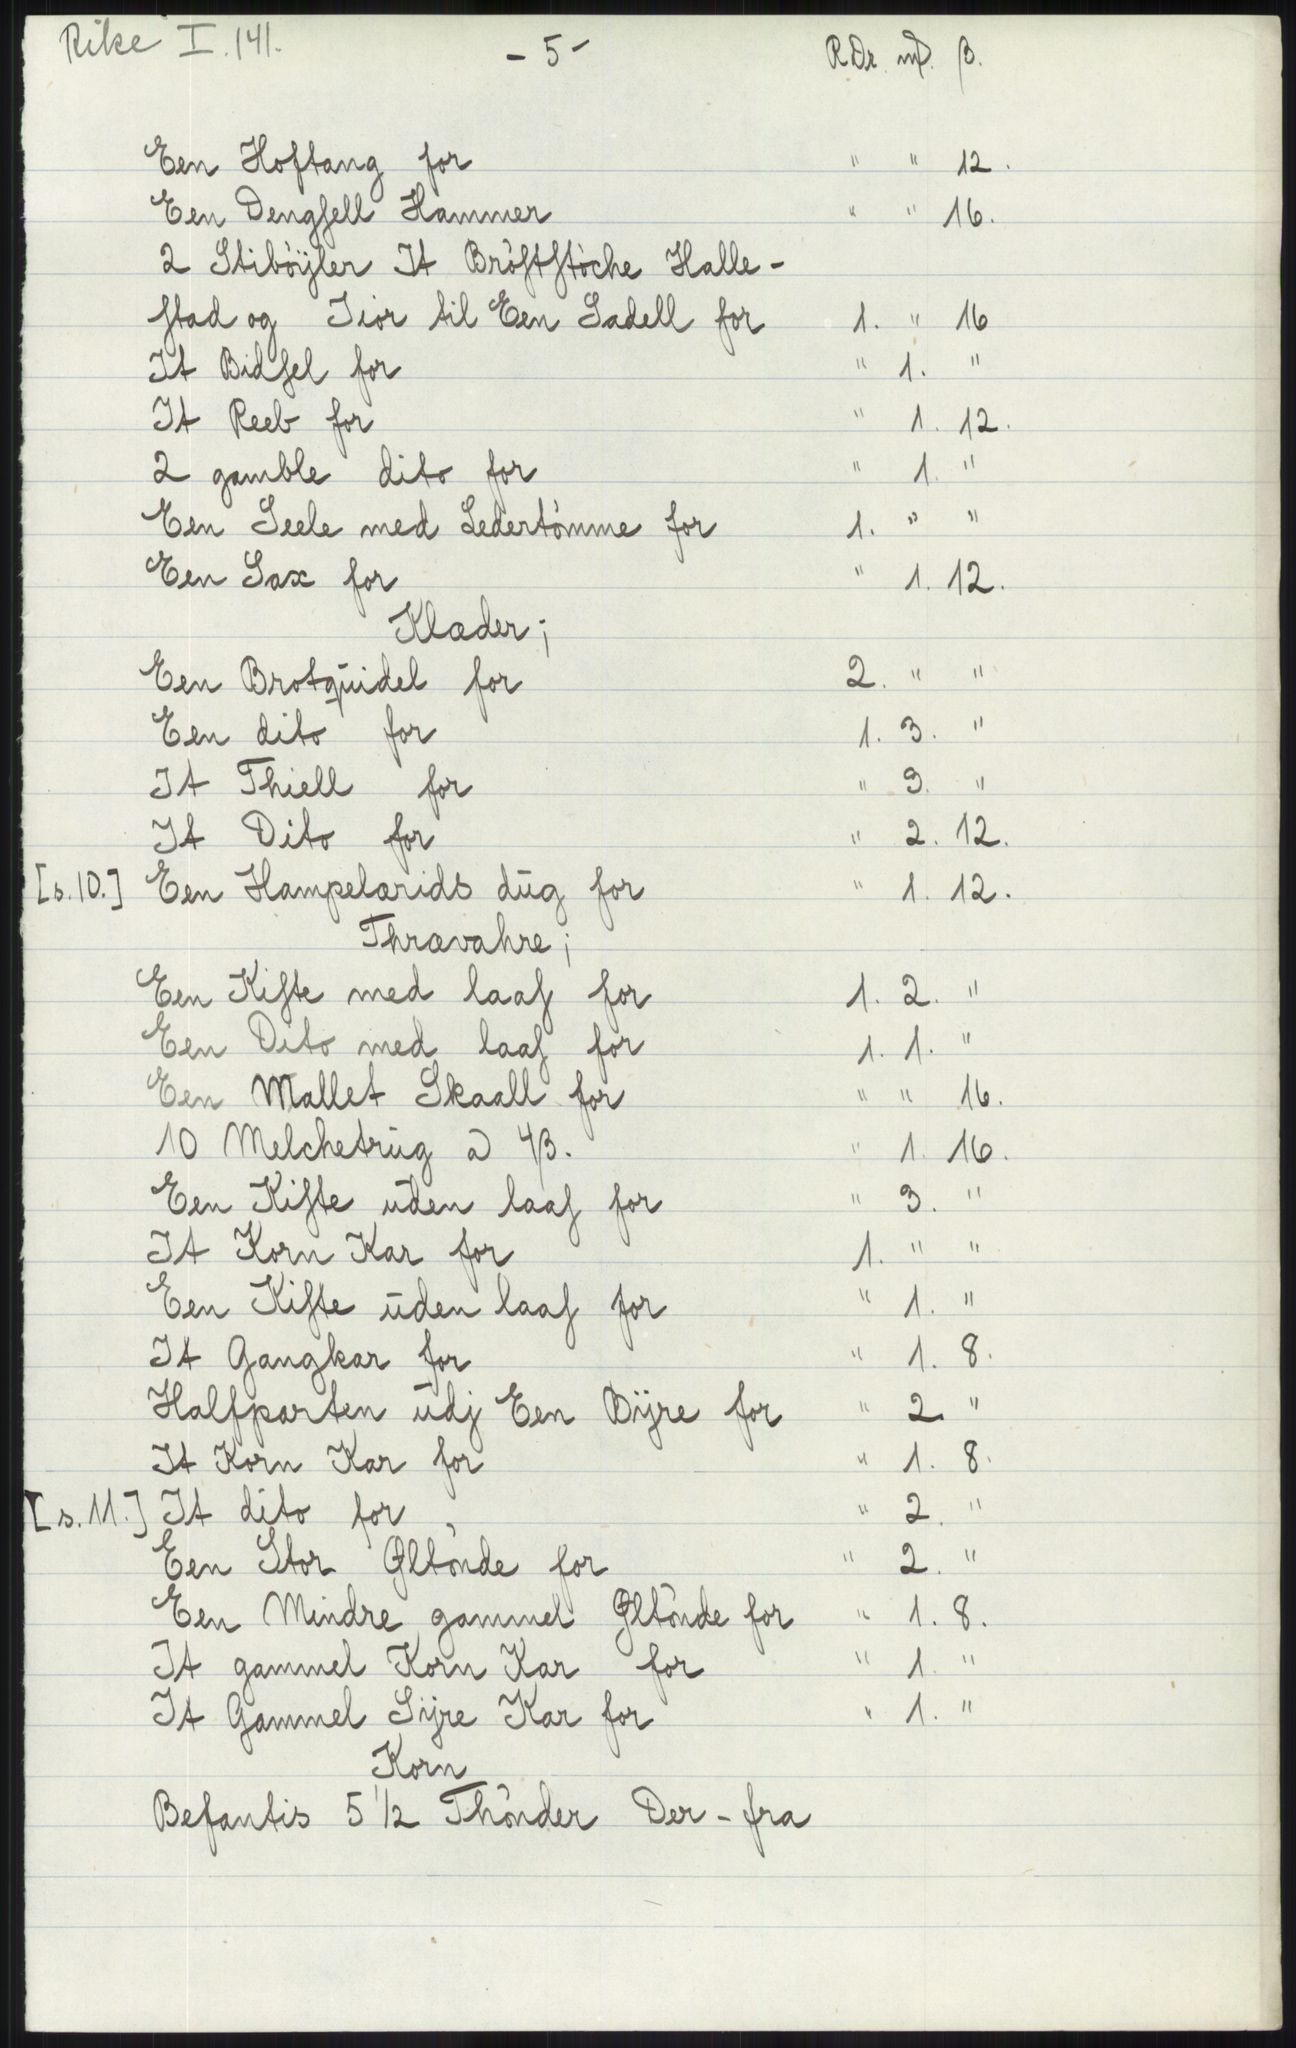 Rike I. 141.
- 5 -
RDr. mƒ. β.
Een Hoftang for " " 12.
Een Dengsell Hammer " " 16.
2 Stibòÿler It Bròstsťòche Halle-
stad og Tior til Een Sadell for 1. " 16
It Bidsel for " 1. "
It Reeb for " 1. 12.
2 gamble dito for " 1. "
Een Seele med Ledertòmme for 1. " "
Een Sax for " 1. 12.
Klæder;
Een Brotquidel for 2. " "
Een dito for 1. 3. "
It Thiell for " 3. "
It Dito for " 2. 12.
[s.10.] Een Hampelærids dūg for " 1. 12.
Thrævahre;
Een Kiste med laas for 1. 2. "
Een Dito med laas for 1. 1. "
Een Mallet Skaall for " " 16.
10 Melchetrūg a 4β. " 1. 16.
Een Kiste ūden laas for " 3. "
It Korn Kar for 1. " "
Een Kiste ūden laas for " 1. "
It Gangkar for " 1. 8.
Halfparten ūdj Een Bÿre for " 2 "
It Korn Kar for " 1. 8.
[s.11.] It dito for " 2. "
Een Stor Øltònde for " 2. "
Een Mindre gammel Øltònde for " 1. 8.
It gammel Korn Kar for " 1. "
It Gammel Sÿre Kar for " 1. "
Korn
Befantis 5 1/2 Thònder Der-fra